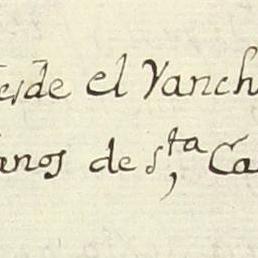 esde el Yanch
anos de Sta, Ca